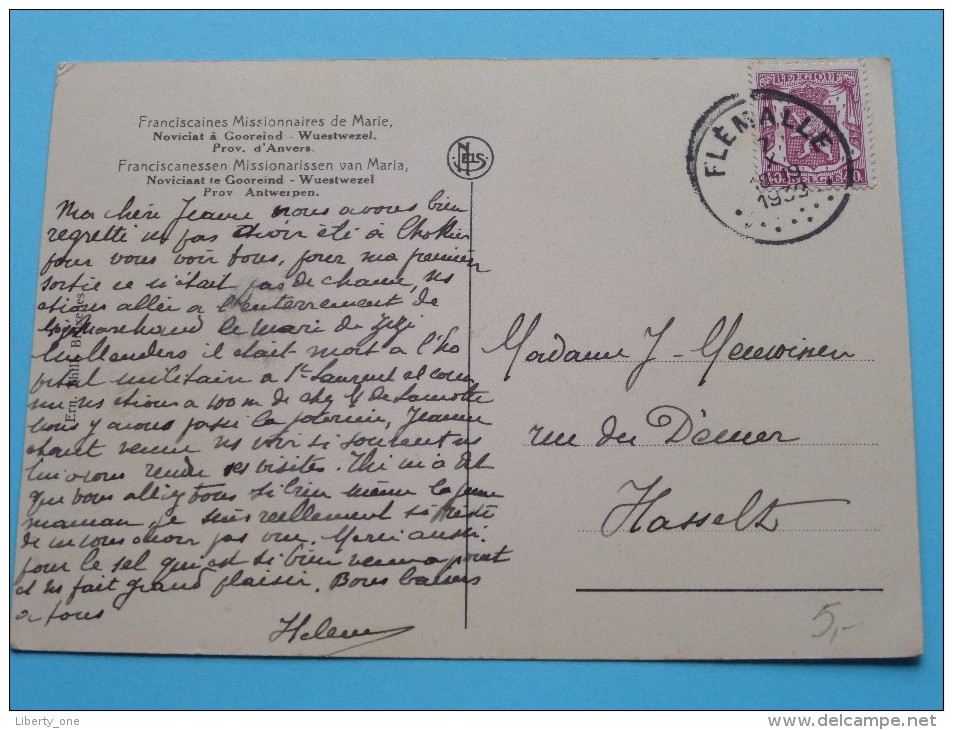 Franciscaines Missionnaires de Marie,
Noviciat à Gooreind - Wuestwezel.
Prov. d'Anvers.
Franciscanessen Missionarissen van Maria,
Noviciaat te Gooreind - Wuestwezel
Prov Antwerpen.
NELS
BELGIQUE
FLEMALLE
Ma chère Jeanne nous avons bien
regretté pas avoir été à Chokier
pour vous voir tous, pour ma première
sortie ce n'était pas de chance, ns
étions allés a l'enterrement de
Marchand le mari de Zizi
il était mort a l'ho
pital militaire a St Laurent et
ns étions a 100 m de chez
nous y avons passé la , Jeanne
étant venue ns voir si souvent ns
lui avons rendu ses visites. m'a dit
que vous alliez tous si bien même la
maman, je suis reellement si
de ne vous avoir pas vu. Merci aussi
pour le sel qui est si bien venu a point
et ns fait grand plaisir. Bons baisers
a tous
Helene
Ern. Thill, Bruxelles
Madame J - Meuwissen
rue du Démer
Hasselt
5,-
Liberty_one
http://www.delcampe.net